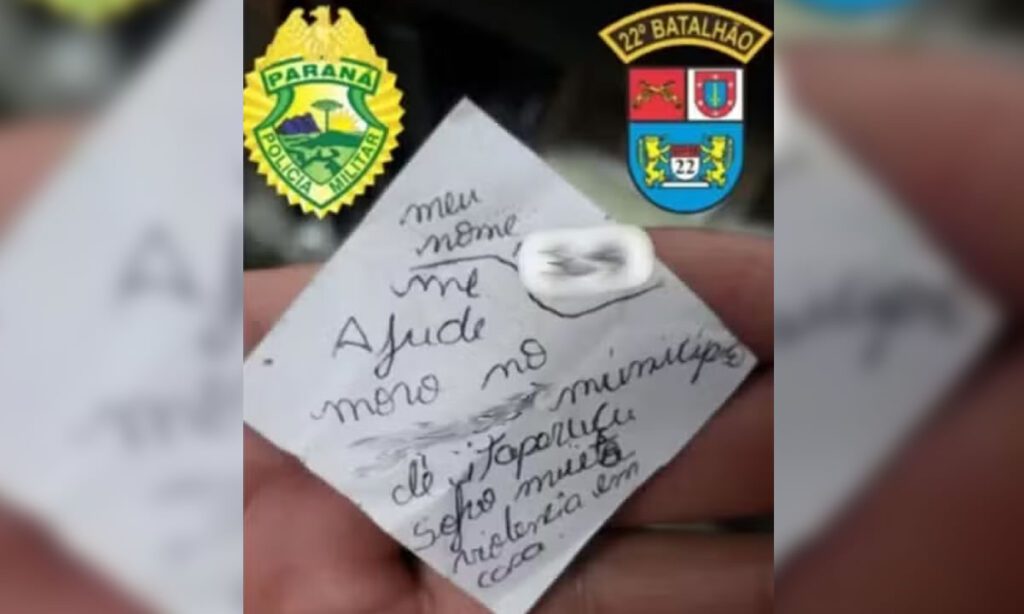 PARANÁ
POLÍCIA MILITAR
22º BATALHÃO
22
meu
nome
me
Ajude
moro no
município
de itaperuçu
sofro muita
violencia em
casa